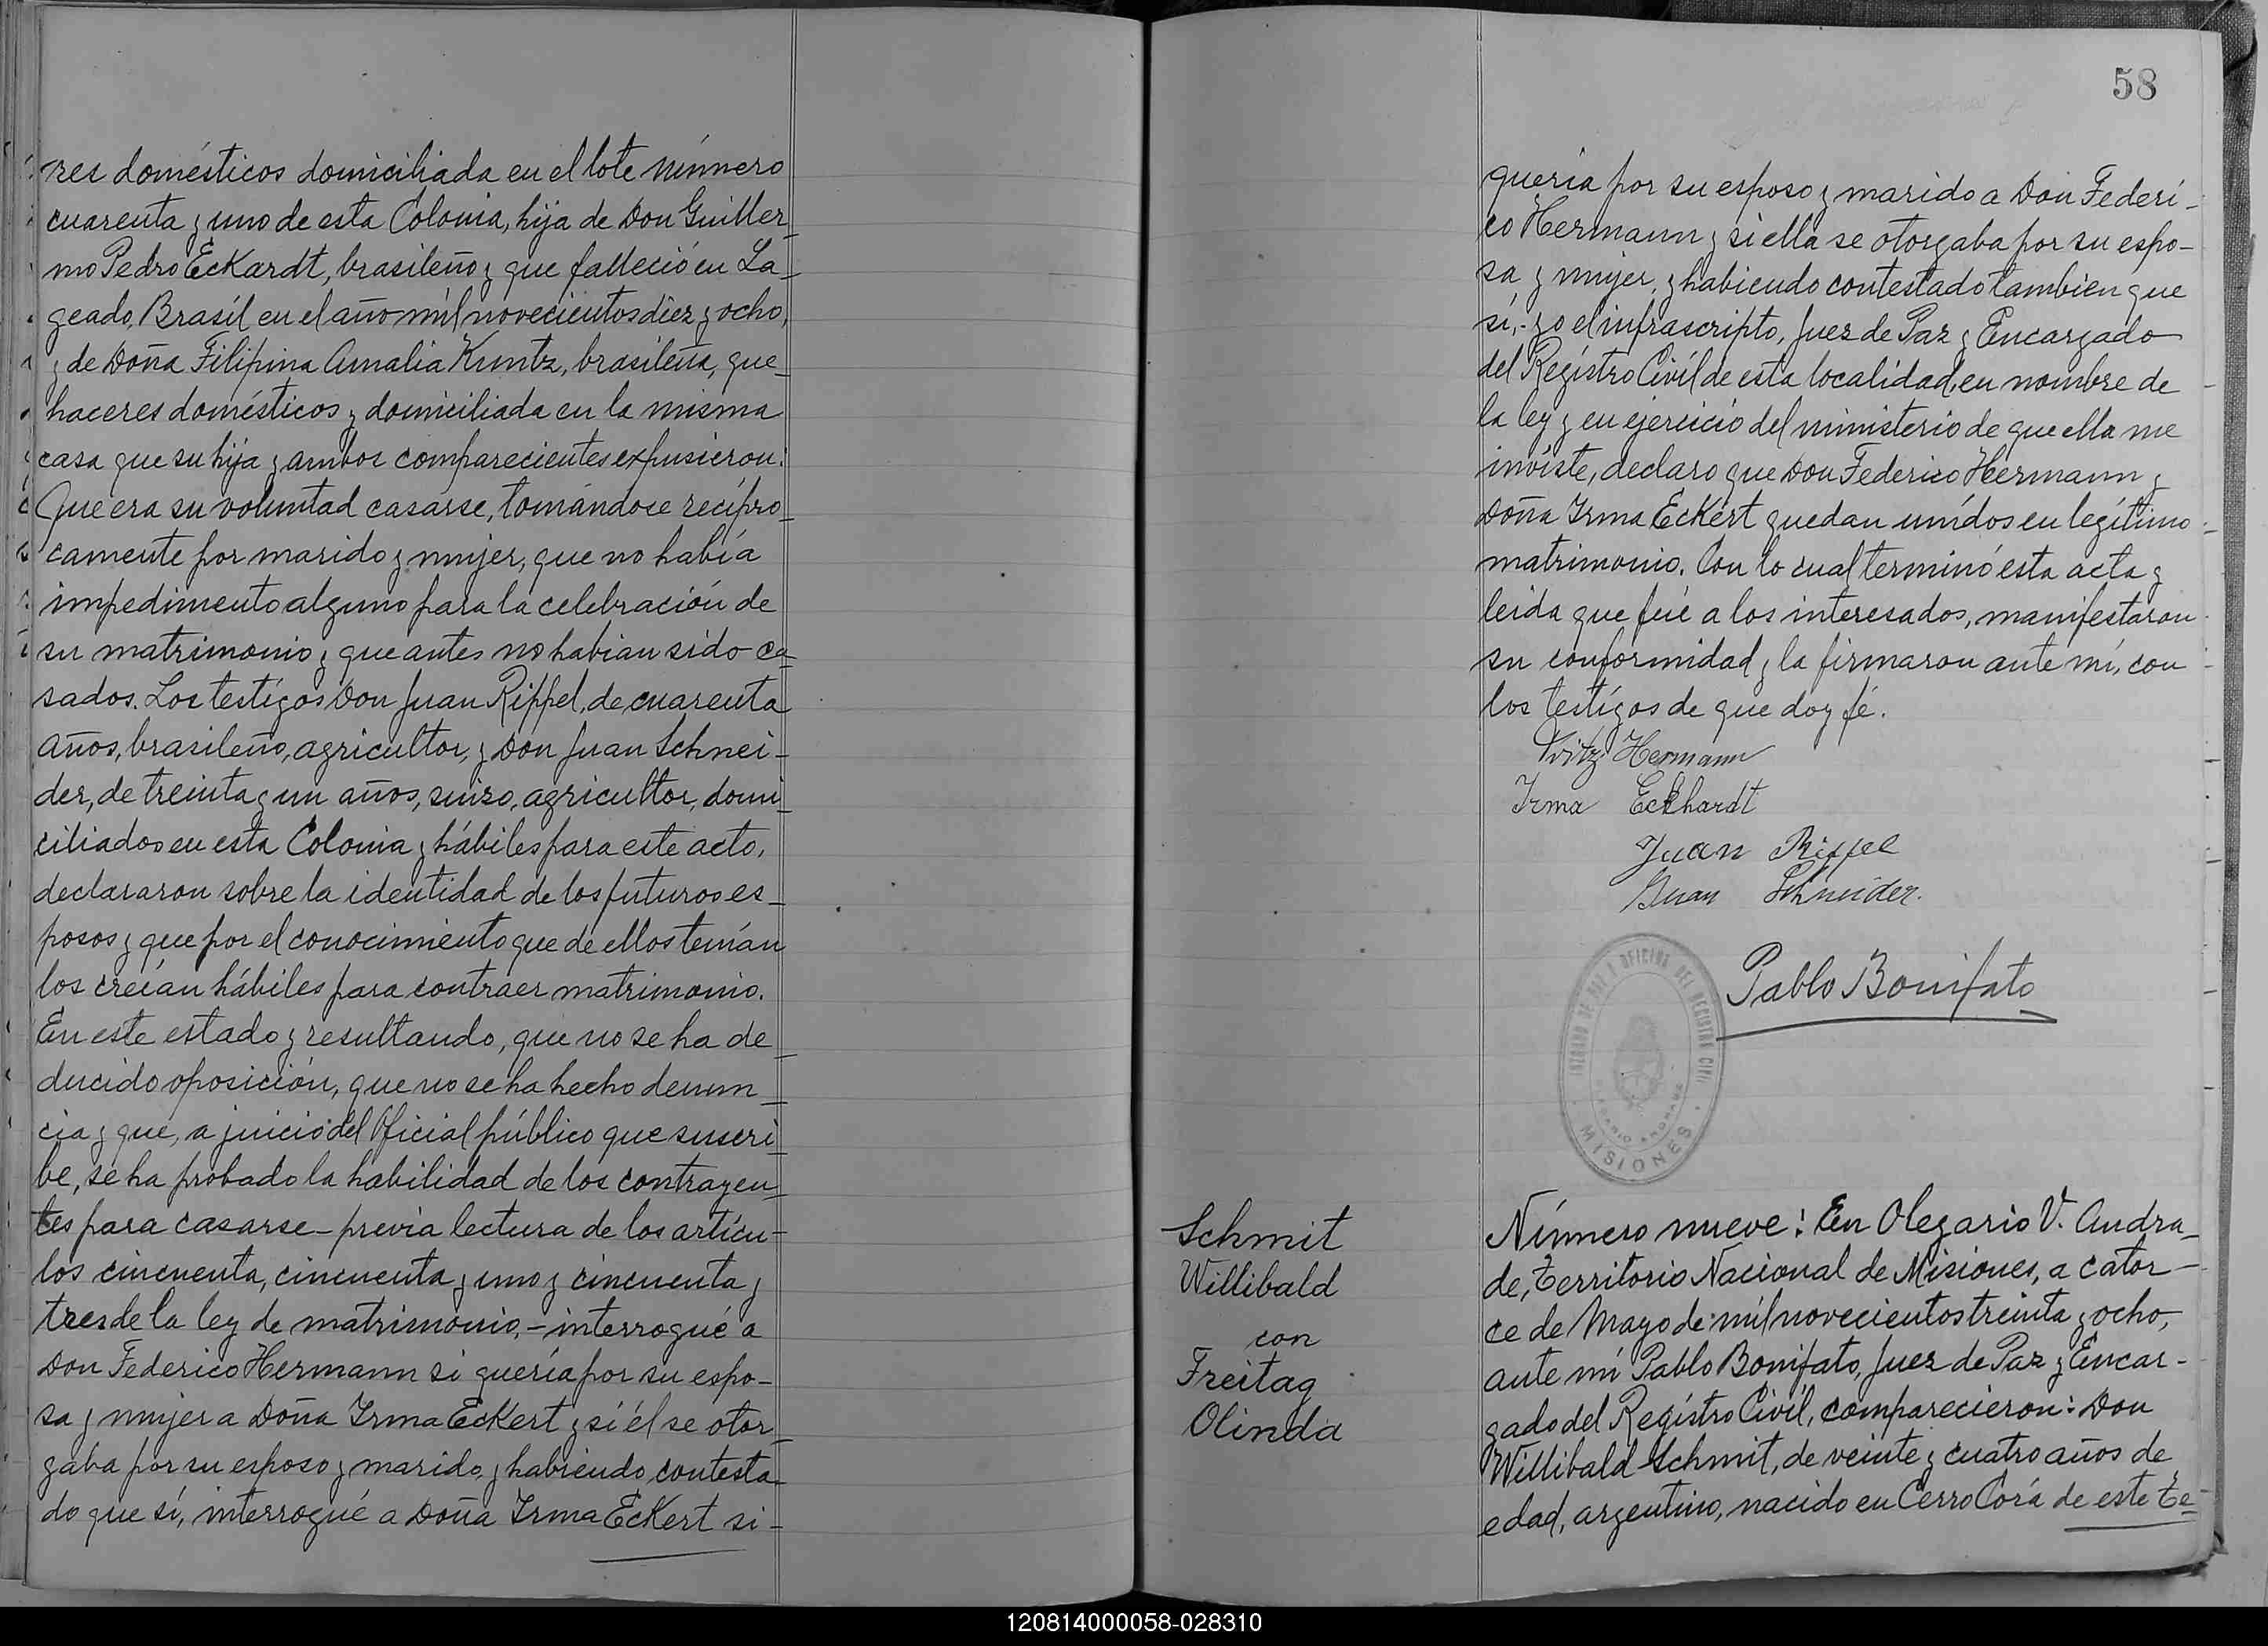 res domésticos domiciliada en el lote número
cuarenta y uno de esta Colonia, hija de Don Guiller-
mo Pedro Eckardt, brasileño y que falleció en La-
geado, Brasíl en el año mil novecientos diez y ocho,
y de Doña Filipina Amalia Kuntz, brasileña, que-
haceres domésticos y domiciliada en la misma
casa que su hija y ambos comparecientes expusieron:
Que era su voluntad casarse, tomándose recípro-
camente por marido y mujer, que no había
impedimento alguno para la celebración de
su matrimonio y que antes no habian sido ca-
sados. Los testigos Don Juan Rippel, de cuarenta
años, brasileño, agricultor, y Don Juan Schnei-
der, de treinta y un años, suizo, agricultor, domi-
ciliados en esta Colonia y hábiles para este acto,
declararon sobre la identidad de los futuros es-
posos y que por el conocimiento que de ellos tenían
los creían hábiles para contraer matrimonio.
En este estado y resultando, que no se ha de-
ducido oposición, que no se ha hecho denun-
cia y que, a juicio del Oficial público que suscri-
be, se ha probado la habilidad de los contrayen-
tes para casarse - previa lectura de los artícu-
los cincuenta, cincuenta y uno y cincuenta y
tres de la ley de matrimonio, - interrogué a
Don Federico Hermann si quería por su espo-
sa y mujer a Doña Irma Eckert y si él se otor-
gaba por su esposo y marido, y habiendo contesta-
do que sí, interrogué a Doña Irma Eckert si -
58
quería por su esposo y marido a Don Federi-
co Hermann y si ella se otorgaba por su espo-
sa y mujer, y habiendo contestado tambien que
sí, - yo el infrascripto, Juez de Paz y Encargado
del Regístro Civíl de esta localidad, en nombre de
la ley y en ejercicio del ministerio de que ella me
inviste, declaro que Don Federico Hermann y
Doña Irma Eckert quedan unídos en legítimo
matrimonio. Con lo cual terminó esta acta y
leida que fué a los interesados, manifestaron
su conformidad y la firmaron ante mí, con
los testígos de que doy fé.
Fritz Hermann
Irma Eckhardt
Juan Rippel
Juan Schneider.
Pablo Bonifato
JUZGADO DE PAZ Y OFICINA DEL REGISTRO CIVIL
MISIONES
Schmit
Willibald
con
Freitag
Olinda
Número nueve: En Olegario V. Andra-
de, Territorio Nacional de Misiones, a cator-
ce de Mayo de mil novecientos treinta y ocho,
ante mí Pablo Bonifato, Juez de Paz y Encar-
gado del Regístro Civíl, comparecieron: Don
Willibald Schmit, de veinte y cuatro años de
edad, argentino, nacido en Cerro Corá de este Te-
120814000058-028310